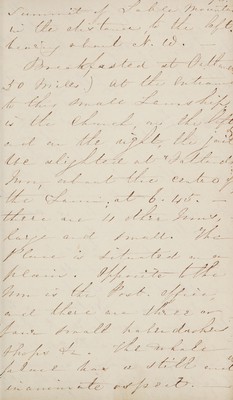 summit of Table Mountain
in the distance to the left
bearing about N. W. —
Breakfasted at
20 miles) at the entrance
to this small Township
is the Church on the left
and on the right, the jail
We slight here at
Inn, about the centre of
the at 6.40. —
there are 10 other Inns,
large and small. The
Place is situated in a
plain. Opposite to the
Inn is the Post Office,
and there are three or
four small haberdashers
Shops &c. The whole
place has a still and
inanimate aspect. —